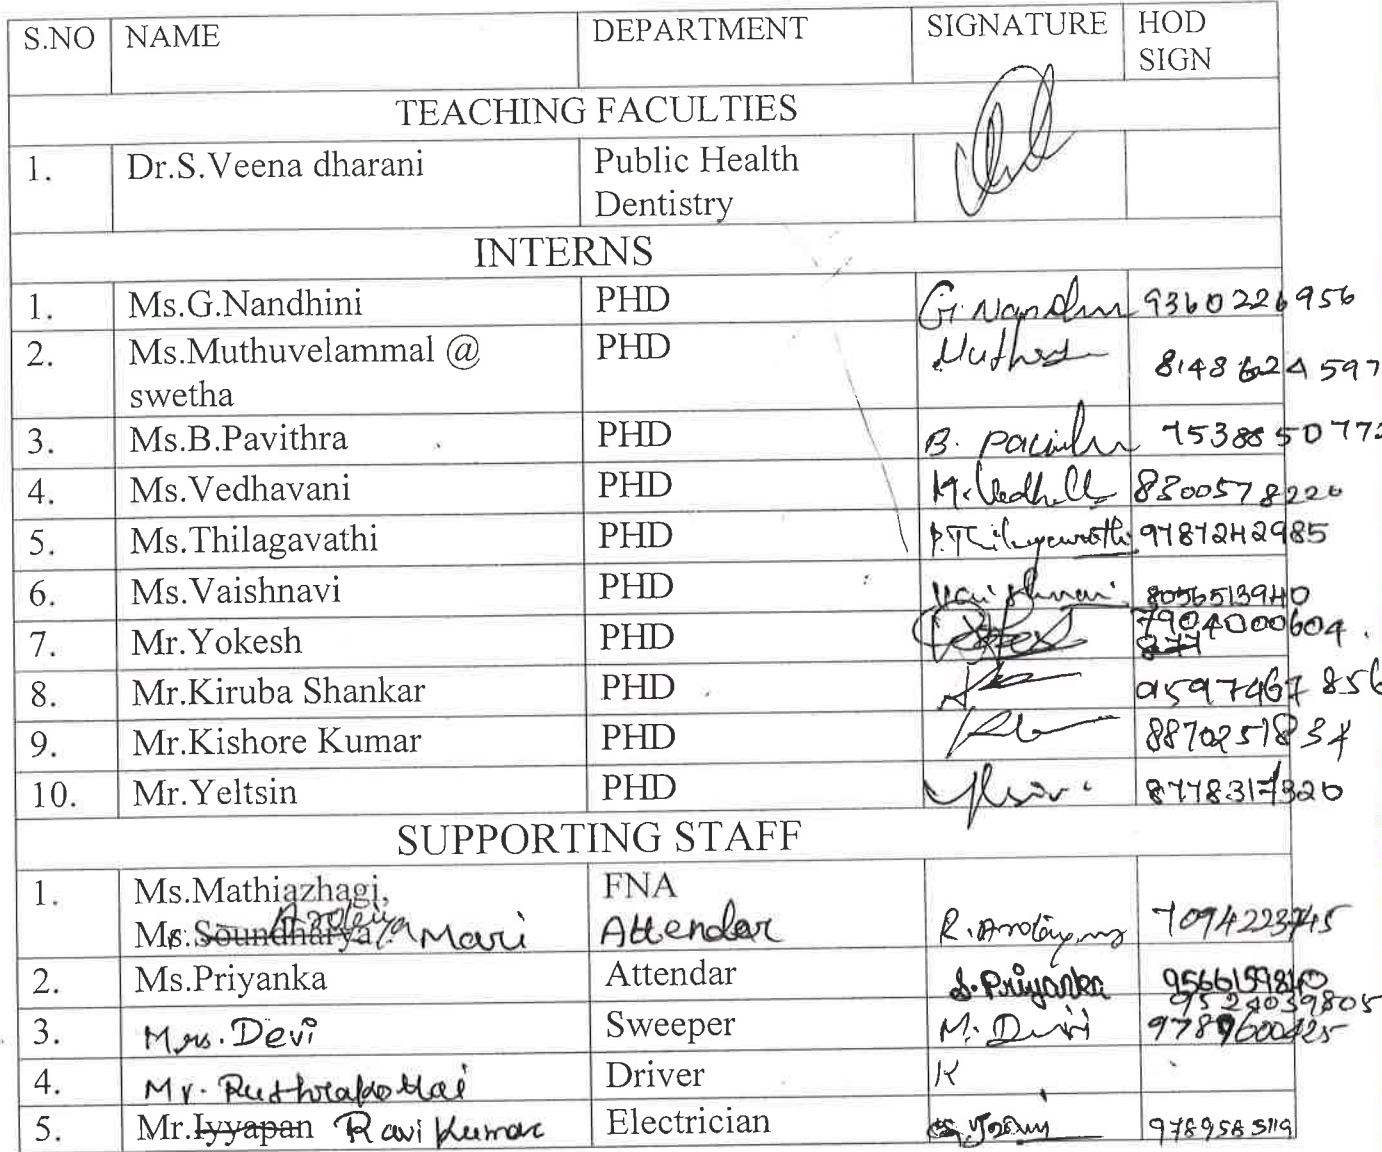 S.NO NAME DEPARTMENT SIGNATURE HOD
SIGN
TEACHING FACULTIES
1. Dr.S.Veena dharani Public Health
Dentistry
INTERNS
1. Ms.G.Nandhini PHD G. Nandhini 9360226956
2. Ms.Muthuvelammal @ PHD 8148624597
swetha
3. Ms.B.Pavithra PHD B. Pavithra 753885077
4. Ms.Vedhavani PHD 8300578220
5. Ms.Thilagavathi PHD P.Thilagavathi 9787242985
6. Ms.Vaishnavi PHD Vaishnavi 8056513940
7. Mr.Yokesh PHD 7904000604
8. Mr.Kiruba Shankar PHD 9597467856
9. Mr.Kishore Kumar PHD 8870251834
10. Mr.Yeltsin PHD 8778317320
SUPPORTING STAFF
1. Ms.Mathiazhagi, FNA
Mr. Soundharya Mari Attender 7094223745
2. Ms.Priyanka Attendar S.Priyanka 9566159840
9524039805
3. Mrs. Devi Sweeper M. Devi 9789600425
4. Mr. Driver K
5. Mr.Iyyapan Ravi Kumar Electrician 9789585119